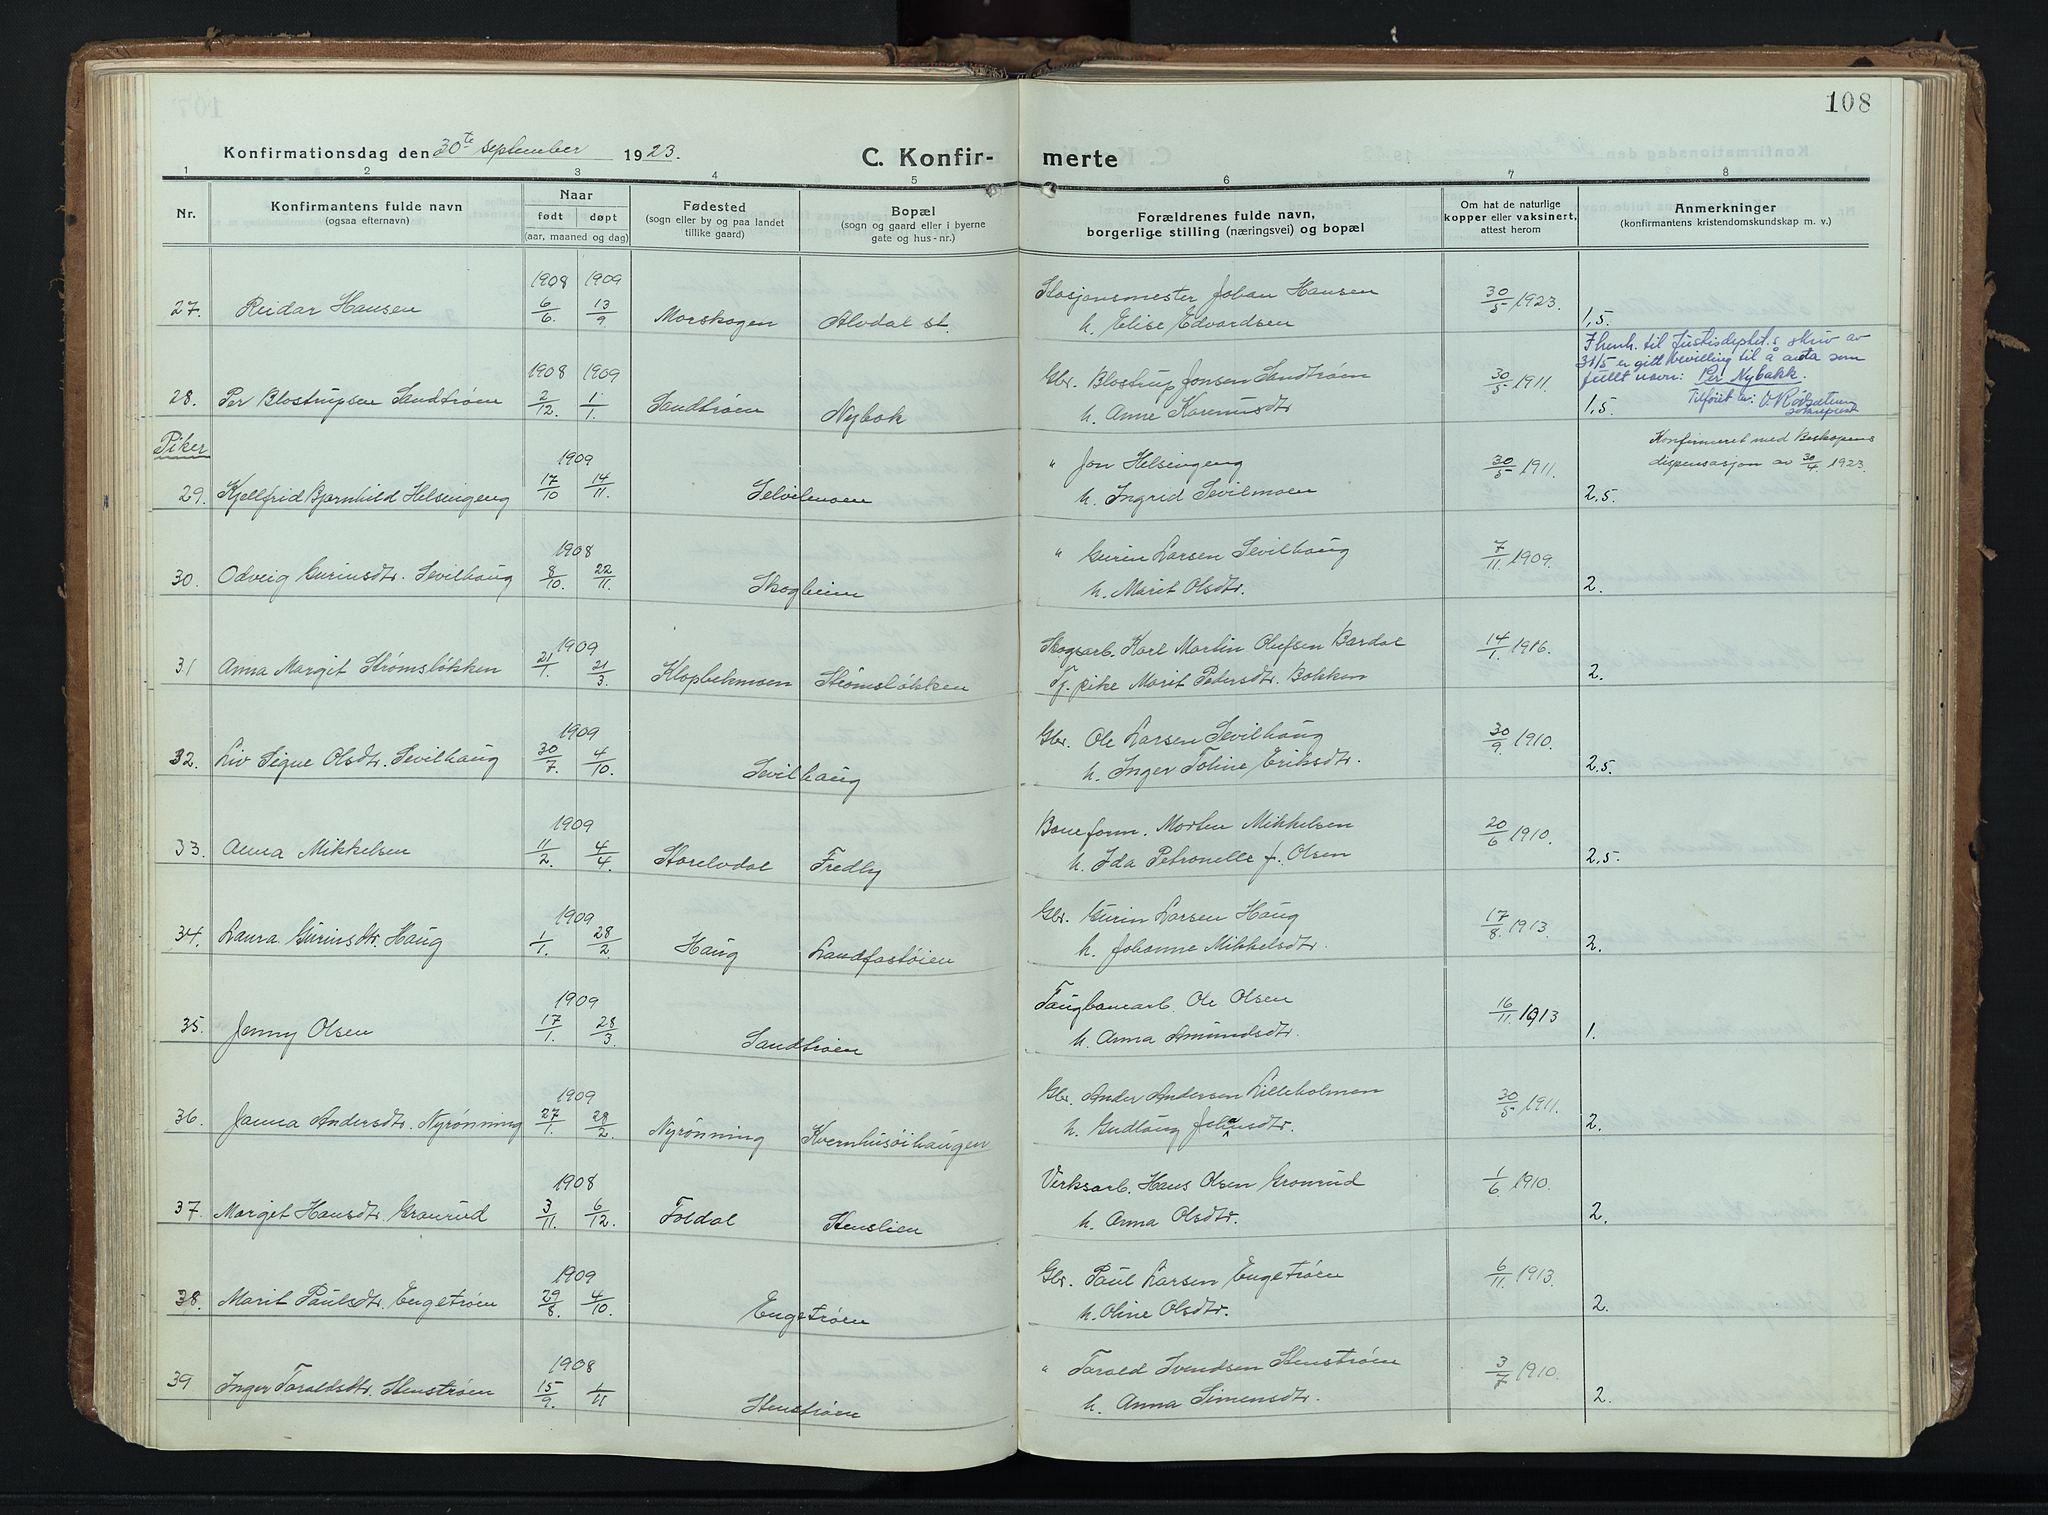 108
Konfirmationsdag den 30te september 1923.
C. Konfir- merte
1 2 3 4 5 6 7 8
Nr.
Konfirmantens fulde navn
(ogsaa efternavn)
Naar
født døpt
(aar, maaned og dag)
Fødested
(sogn eller by og paa landet
tillike gaard)
Bopæl
(sogn og gaard eller i byerne
gate og hus-nr.)
Forældrenes fulde navn,
borgerlige stilling (næringsvei) og bopæl
Om hat de naturlige
kopper eller vaksinert,
attest herom
Anmerkninger
(konfirmantens kristendomskundskap m. v.)
1908 1909
27. Reidar Hansen 6/6. 13/9 Morskogen Alvdal st. Stasjonsmester Johan Hansen 30/5 1923. 1,5.
h. Elise Edvardsen
1908 1909
28. Per Blostrupsen Sandtrøen 2/12. 1/1. Sandtrøen Nybak Gbr. Blostrup Jonsen Sandtrøen 30/5 1911. 1,5.
h. Anne Karenusdtr
I henh. til Justisdeptet.s skriv av
31/5 er gitt bevilling til å anta som
fullt navn: Per Nybakk.
Tilføiet av: O. Røisetung
sokneprest
Piker
1909
29. Kjellfrid Bjørnhild Helsingeng 17/10 14/11. Selvilmoen " Jon Helsingeng 30/5 1911. 2,5.
h. Ingrid Sevilmoen
Konfirmeret med Biskopens
dispensasjon av 30/4 1923.
1908
30. Odveig Gurinsdtr. Sevilhaug 8/10. 22/11. Skogheim " Gurin Larsen Sevilhaug 7/11 1909. 2.
h. Marit Olsdtr.
1909
31 Anna Margit Strømsløkken 21/1. 21/3. Klopbekmoen Strømsløkken Skogsarb. Karl Martin Olufsen Bardal 14/1. 1916. 2.
Tj. pike Marit Pedersdtr. Bakken
1909
32. Liv Signe Olsdtr. Sevilhaug 30/7. 4/10. Sevilhaug Gbr. Ole Larsen Sevilhaug 30/9. 1910. 2,5.
h. Inger Toline Eriksdtr.
1909
33. Anna Mikkelsen 11/2. 4/4. Storelvdal Fredly Baneform. Morten Mikkelsen 20/6 1910. 2,5.
h. Ida Petronelle f. Olsen
1909
34. Laura Gurinsdtr. Haug 1/1. 28/2 Haug Landfastøien Gbr. Gurin Larsen Haug 17/8. 1913. 2.
h. Johanne Mikkelsdtr.
1909
35. Jenny Olsen 17/1. 28/3. Sandtrøen Taugbanearb. Ole Olsen 16/11. 1913 1.
h. Anna Amundsdtr.
1909
36. Janna Andersdtr. Nyrønning 27/1. 28/2. Nyrønning Kvernhusøihaugen Gbr. Ander Andersen Lilleholmen 30/5 1911. 2.
h. Gudlaug Johansdtr.
1908
37. Margit Hansdtr. Granrud 3/11. 6/12. Foldal Stenslien Verksarb. Hans Olsen Granrud 1/6 1910. 2.
h. Anna Olsdtr.
1909
38. Marit Paulsdtr. Engetrøen 29/8. 4/10. Engetrøen Gbr. Paul Larsen Engetrøen 6/11. 1913. 2.
h. Oline Olsdtr.
1908
39 Inger Taraldsdtr. Stenstrøen 15/9. 1/11 Stenstrøen " Tarald Svendsen Stenstrøen 3/7 1910. 2.
h. Anna Simensdtr.